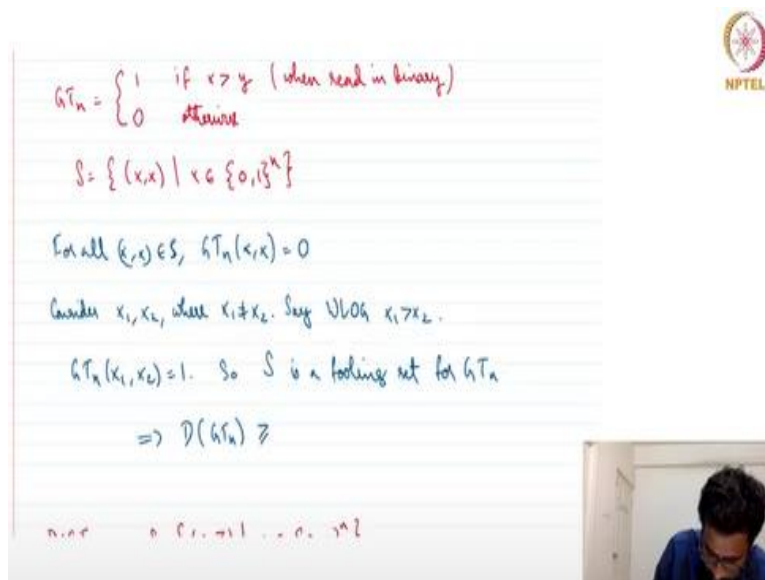 NPTEL
GTₙ = { 1 if x > y (when read in binary)
0 otherwise
S = { (x,x) | x ∈ {0,1}ⁿ }
For all (x,x) ∈ S, GTₙ(x,x) = 0
Consider x₁, x₂, where x₁ ≠ x₂. Say WLOG x₁ > x₂.
GTₙ(x₁, x₂) = 1. So S is a fooling set for GTₙ
=> D(GTₙ) ≥